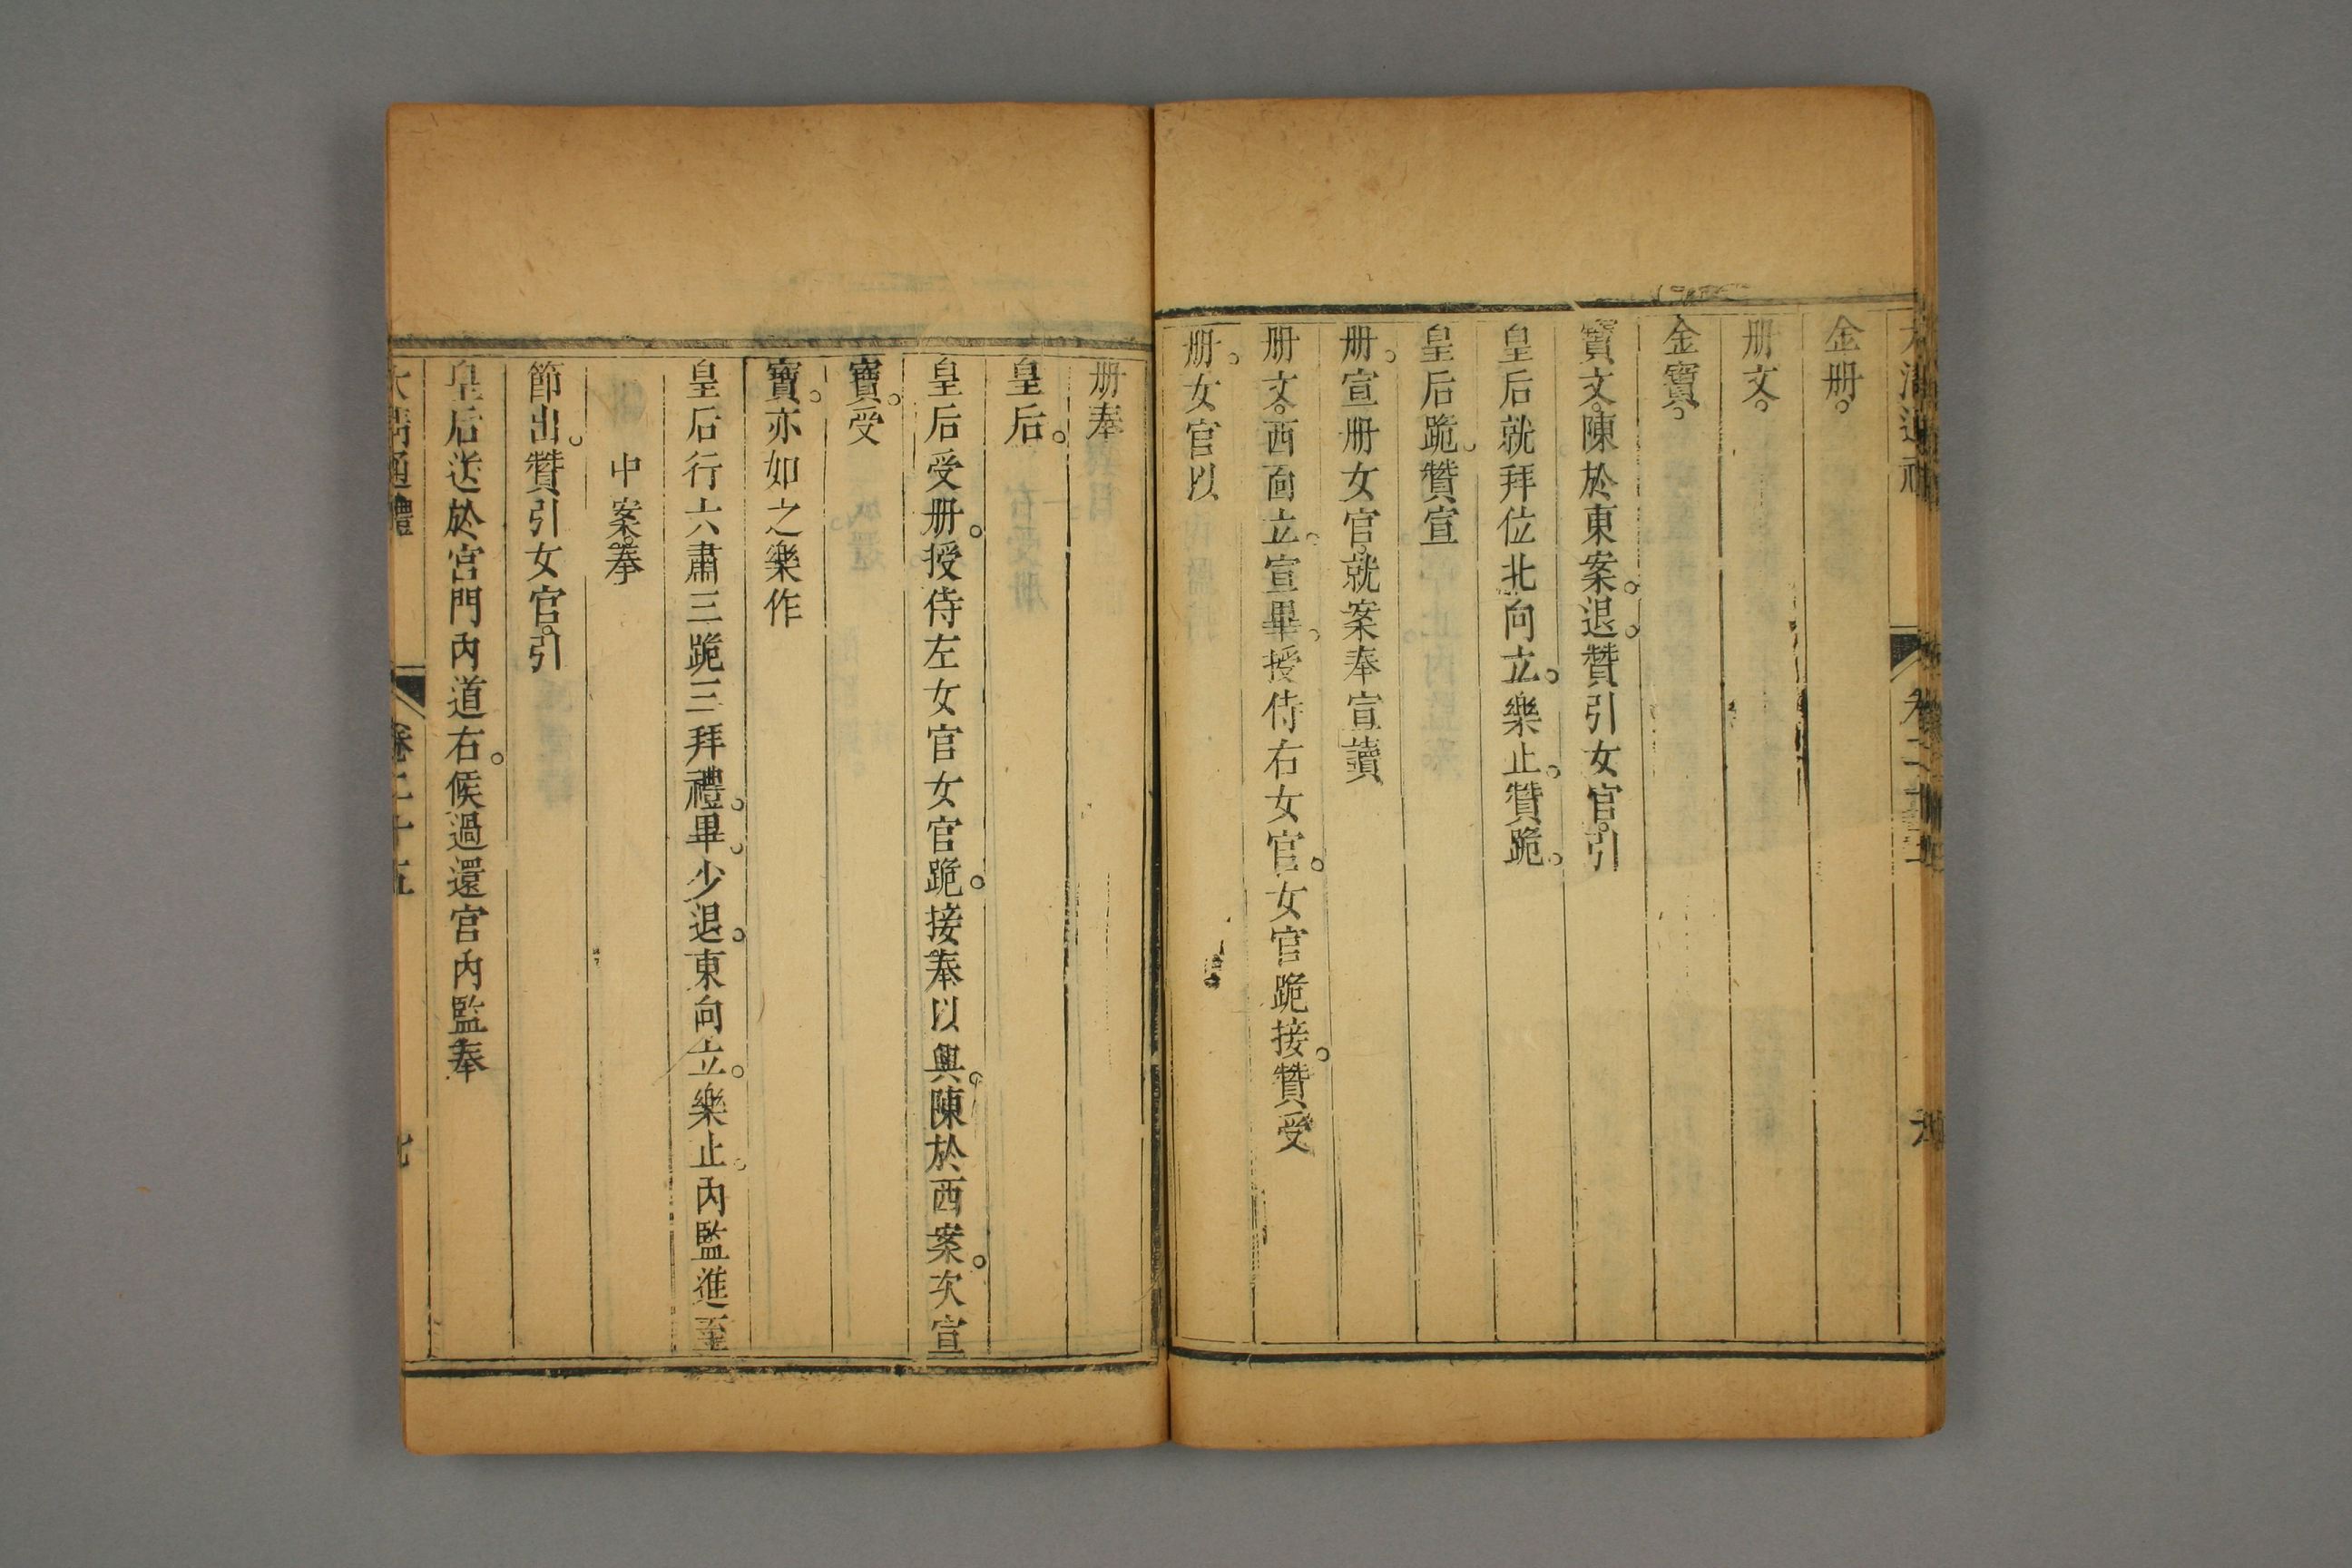 金册。
册文。
金寳。
寳文。陳於東案。退。贊引女官。引
皇后就拜位北向立。樂止。贊跪。
皇后跪。贊宣
册。宣册女官。就案奉宣讀
册文。西面立。宣畢。授侍右女官。女官跪接。贊受
册。女官以
册奉
皇后。
皇后受册。授侍左女官女官跪。接奉以興。陳於西案。次宣
寳。受
寳。亦如之樂作
皇后行六肅三跪三拜禮。畢。少退。東向立。樂止。內監進至
中案。奉
節出。贊引女官。引
皇后送於宮門內道右。候過還宮內監奉
大清通禮 卷二十五 七